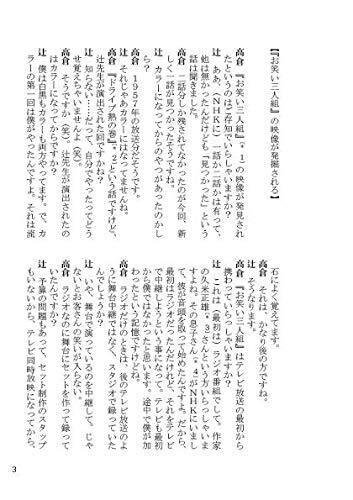 【『お笑い三人組』の映像が発掘される】
高倉　『お笑い三人組』*1の映像が発見され
たというのはご存知でいらっしゃいますか?
辻　ああ、（NHKに）一話か二話かは有って、
他は無かったんだけども「見つかった」という
話は聞きました。
高倉　二話分しか残されてなかったのが今回、新
しく一話が見つかったそうですが。
辻　カラーになってからのやつがあったのかし
ら?
高倉　1957年の放送分だそうです。
辻　それじゃあカラーにはなってませんね。
高倉　『ドライブは熱川の巻』*2という話ですけど、
辻先生が演出された回ですかね?
辻　知らない……だって、自分でやったうって
せ覚えちゃいませんよ（笑）。
高倉　そうですか（笑）。辻先生が演出されたの
はカラーになってからですか?
辻　僕は白黒もカラーも両方やってます。で、カ
ラーの第一回は僕がやったんですよ。それは流
石によく覚えてます。
高倉　それは、かなり後の方ですね。
辻　そうなります。
高倉　『お笑い三人組』はテレビ放送の最初から
携わっていらっしゃいますか?
辻　これは（最初は）ラジオ番組でして、作家
の久米正雄*3さんという方いらっしゃいま
すよね。その息子さん*4がNHKにいまし
て、彼が音頭を取って始めたんですよ。だから、
最初はラジオだけだったんだけど、それをテレビ
で中継しようという事になって。テレビも最初
から僕ではなかったと思います。途中で僕が加
わったという記憶ですけどね。
高倉　ラジオだけのときは、後のテレビ放送のよ
うに舞台中継ではなく、スタジオで録っていた?
辻　いや、舞台で演っているのを中継して。じゃ
ないとお客さんの笑いが入らない。
高倉　ラジオなのに舞台にセットを作って録って
いたんですか?
辻　予算の問題もあって、セット制作のスタップ
もいないから、テレビ同時放映になってから、
3